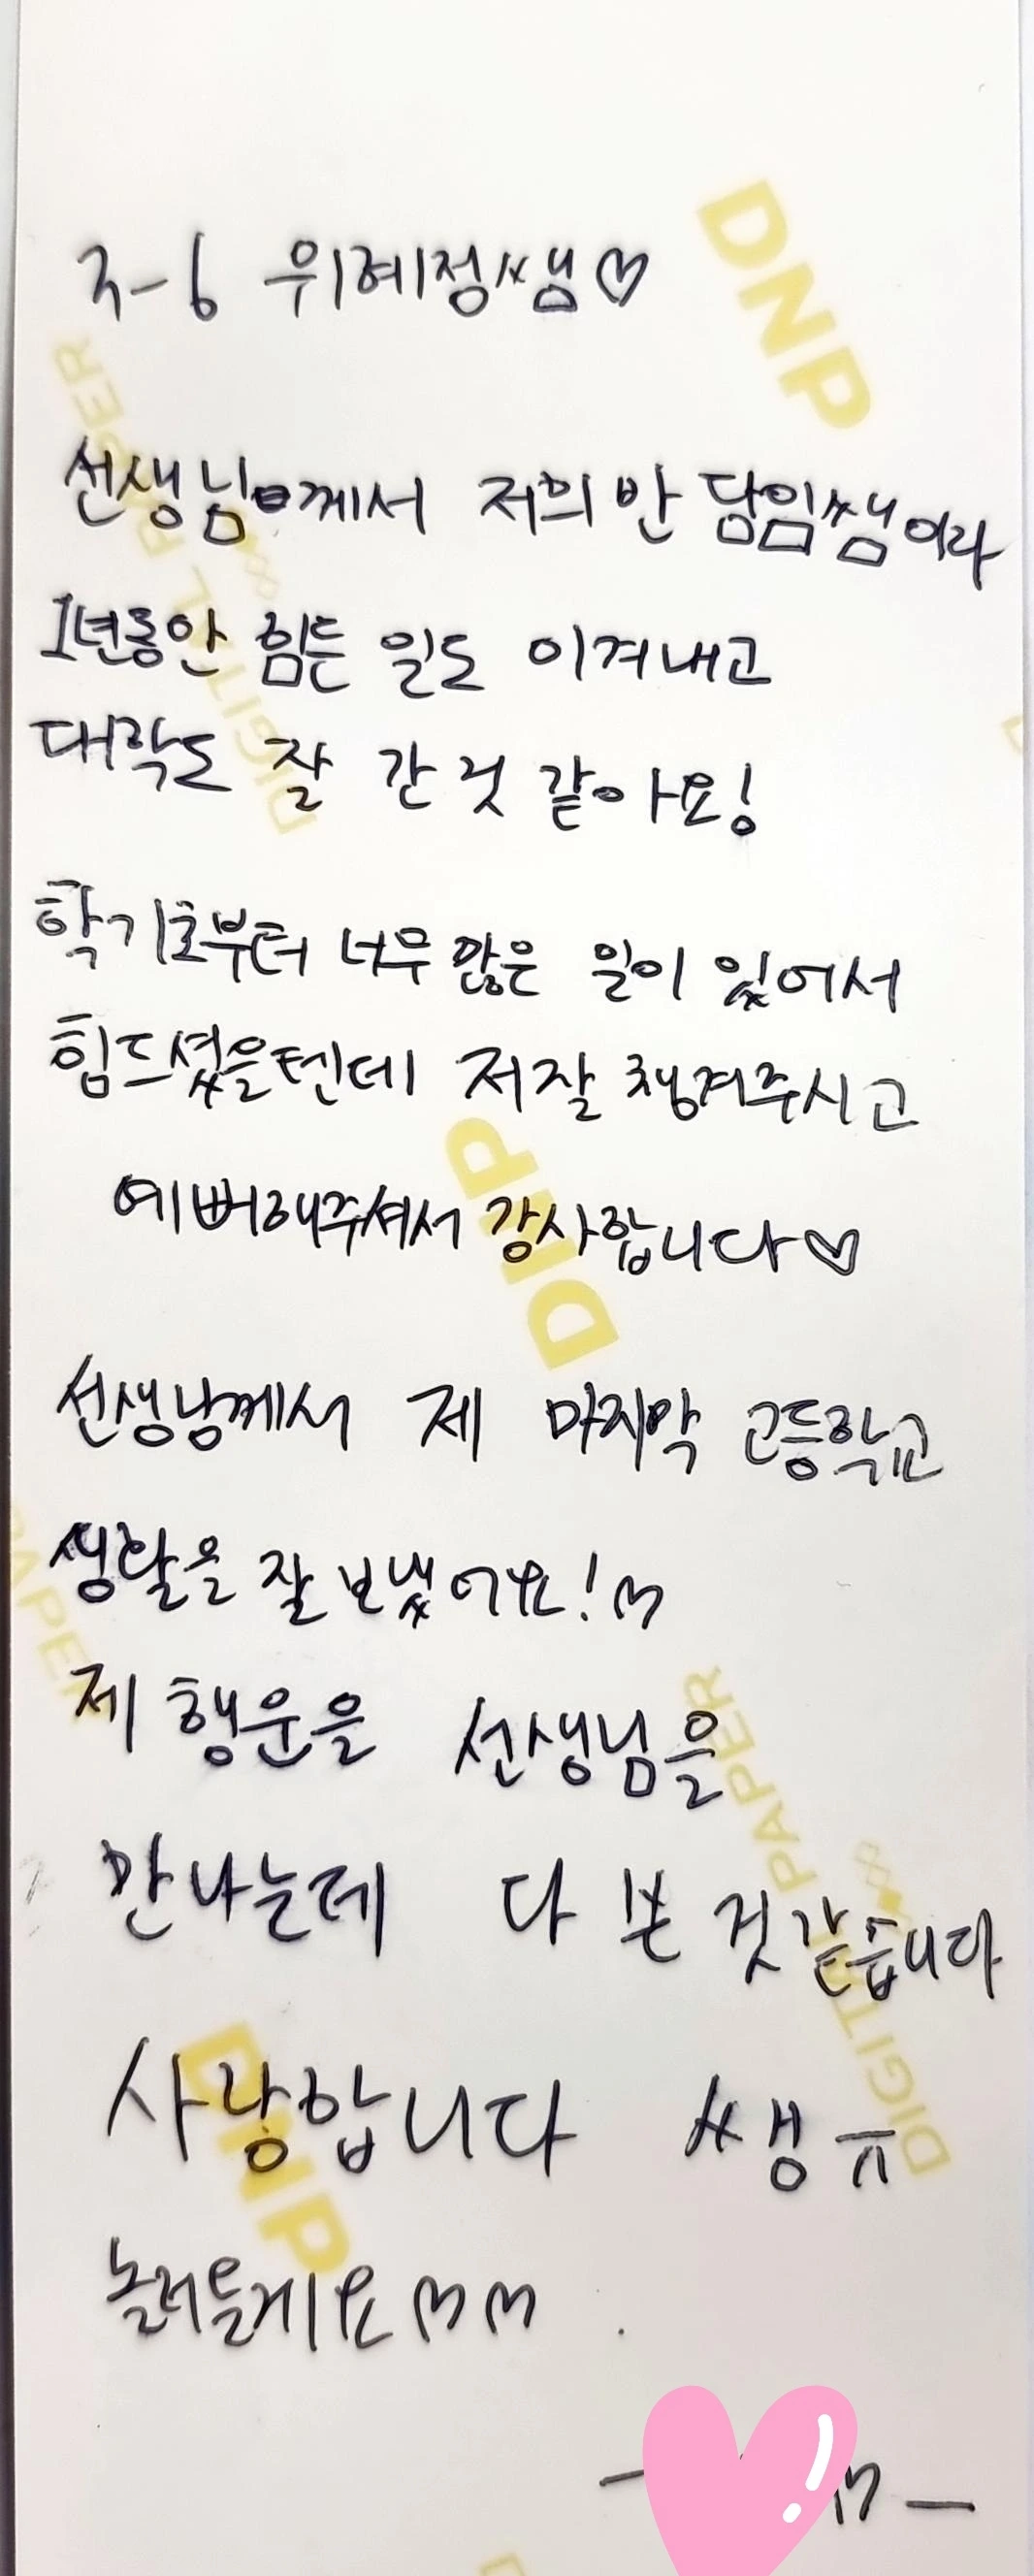 3-6 위혜정쌤♡
선생님께서 저희 반 담임쌤이라
1년동안 힘든 일도 이겨내고
대학도 잘 간 것 같아요!
학기초부터 너무 많은 일이 있어서
힘드셨을텐데 저 잘 챙겨주시고
예뻐해주셔서 감사합니다♡
선생님께서 제 마지막 고등학교
생활을 잘 보냈어요!♡
제 행운을 선생님을
만나는데 다 쓴 것 같습니다
사랑합니다 쌤ㅠ
놀러올게요♡♡
DNP
DNP
DNP
DIGITAL PAPER
DIGITAL PAPER